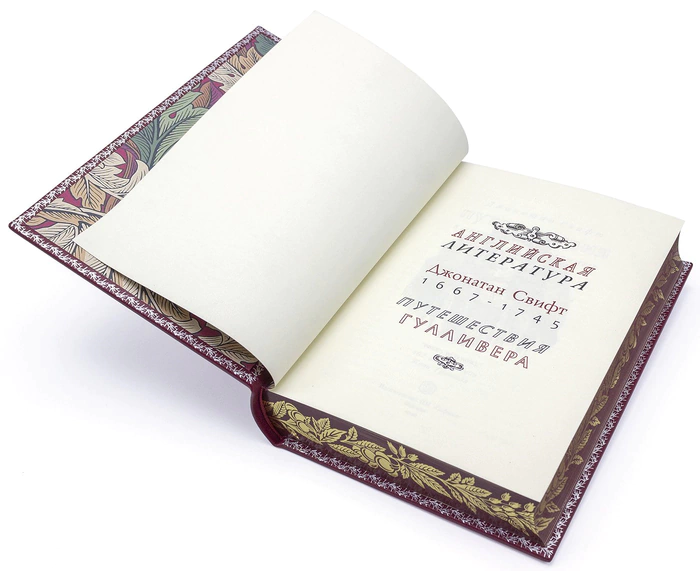 АНГЛИЙСКАЯ
ЛИТЕРАТУРА
Джонатан Свифт
1667-1745
ПУТЕШЕСТВИЯ
ГУЛЛИВЕРА